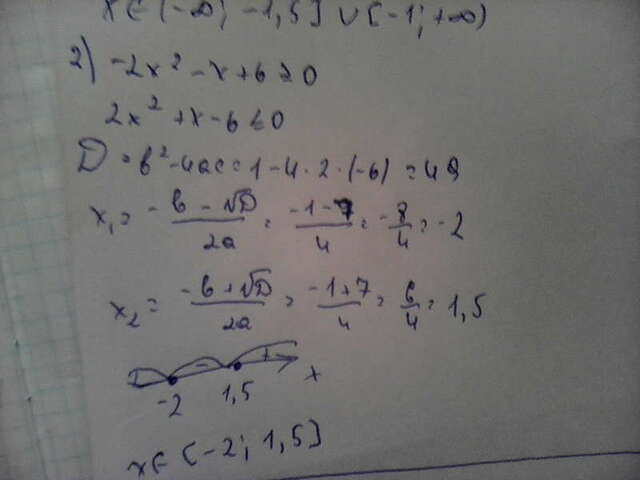 x ∈ (-∞; -1,5] ∪ [-1; +∞)
2) -2x² - x + 6 ≥ 0
2x² + x - 6 ≤ 0
D = b² - 4ac = 1 - 4 · 2 · (-6) = 49
x₁ = (-b - √D)/2a = (-1 - 7)/4 = -8/4 = -2
x₂ = (-b + √D)/2a = (-1 + 7)/4 = 6/4 = 1,5
+ - + x
-2 1,5
x ∈ [-2; 1,5]